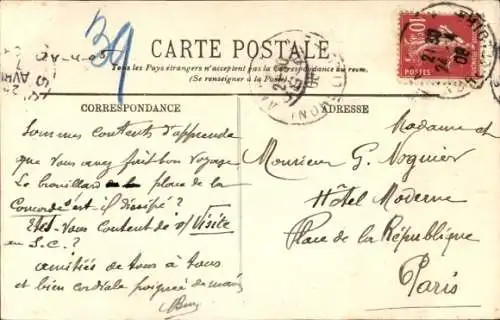 39
CARTE POSTALE
Tous les Pays étrangers n'acceptent pas la Correspondance au recto.
(Se renseigner à la Poste)
CORRESPONDANCE
ADRESSE
Sommes contents d'apprendre
que vous avez fait bon voyage
Le brouillard place de la
Concorde est-il dissipé ?
Etes-Vous Content de v/ Visite
en S.C. ?
amitiés de tous à tous
et bien cordiale poignée de mains
Madame et
Monsieur G. Noguier
Hôtel Moderne
Place de la République
Paris
10
POSTES